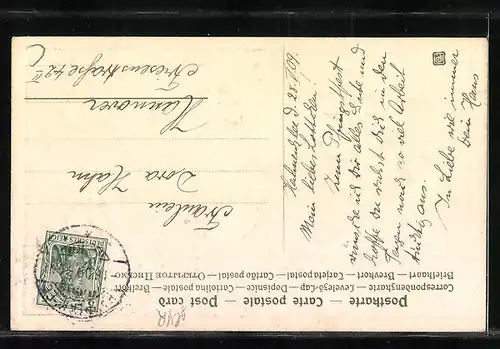 Postkarte — Carte postale — Post card
Correspondenzkarte — Levelező-Lap — Dopisnice — Cartolina postale — Brefkort
Briefkaart — Brevkort — Tarjeta postal — Cartão postal — Открытое Письмо
DEUTSCHES REICH
Fräulein
Dora Hahn
Hannover
Friesenstraße 42 II
d. 28.5.09.
Mein liebes
Zum Pfingstfest
wünsche ich dir alles Gute und
hoffe du ruhst dich in den
Tagen nach so viel Arbeit
tüchtig aus.
In Liebe wie immer
dein Hans